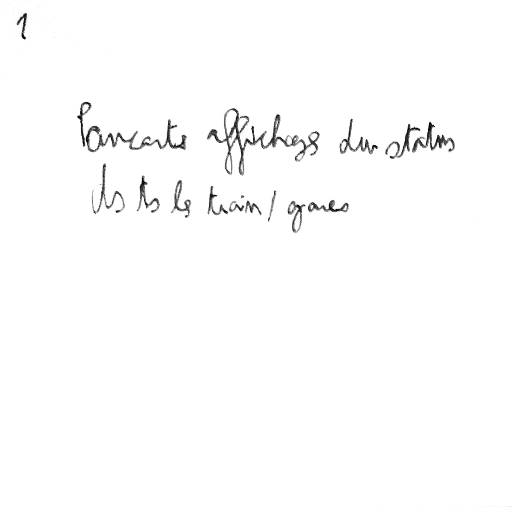 1
Pancarte affichage du status
ds ts les train / gares